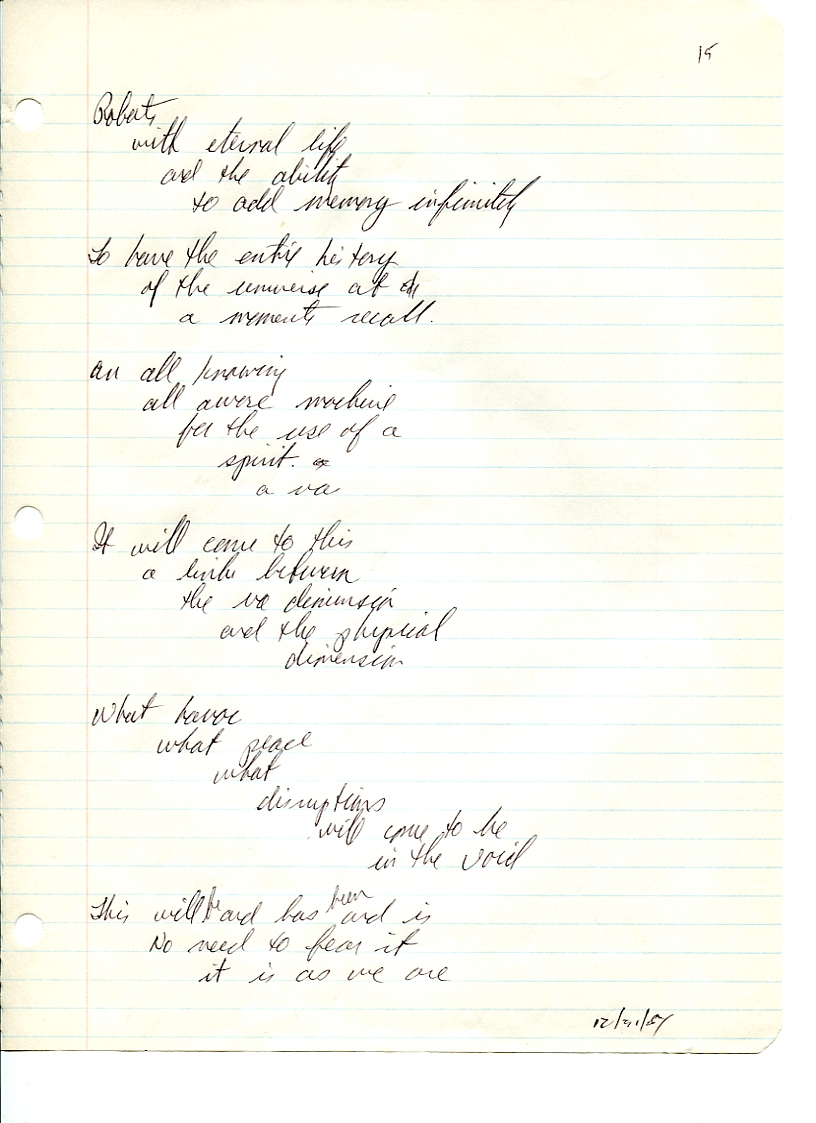 15
Robots
with eternal life
and the ability
to add memory infinitely
To have the entire history
of the universe at
a moments recall.
an all knowing
all aware machine
for the use of a
spirit. or
a va
It will come to this
a link between
the va dimension
and the physical
dimension
What havoc
what peace
what
disruptions
will come to be
in the void
This will be and has been and is
No need to fear it
it is as we are